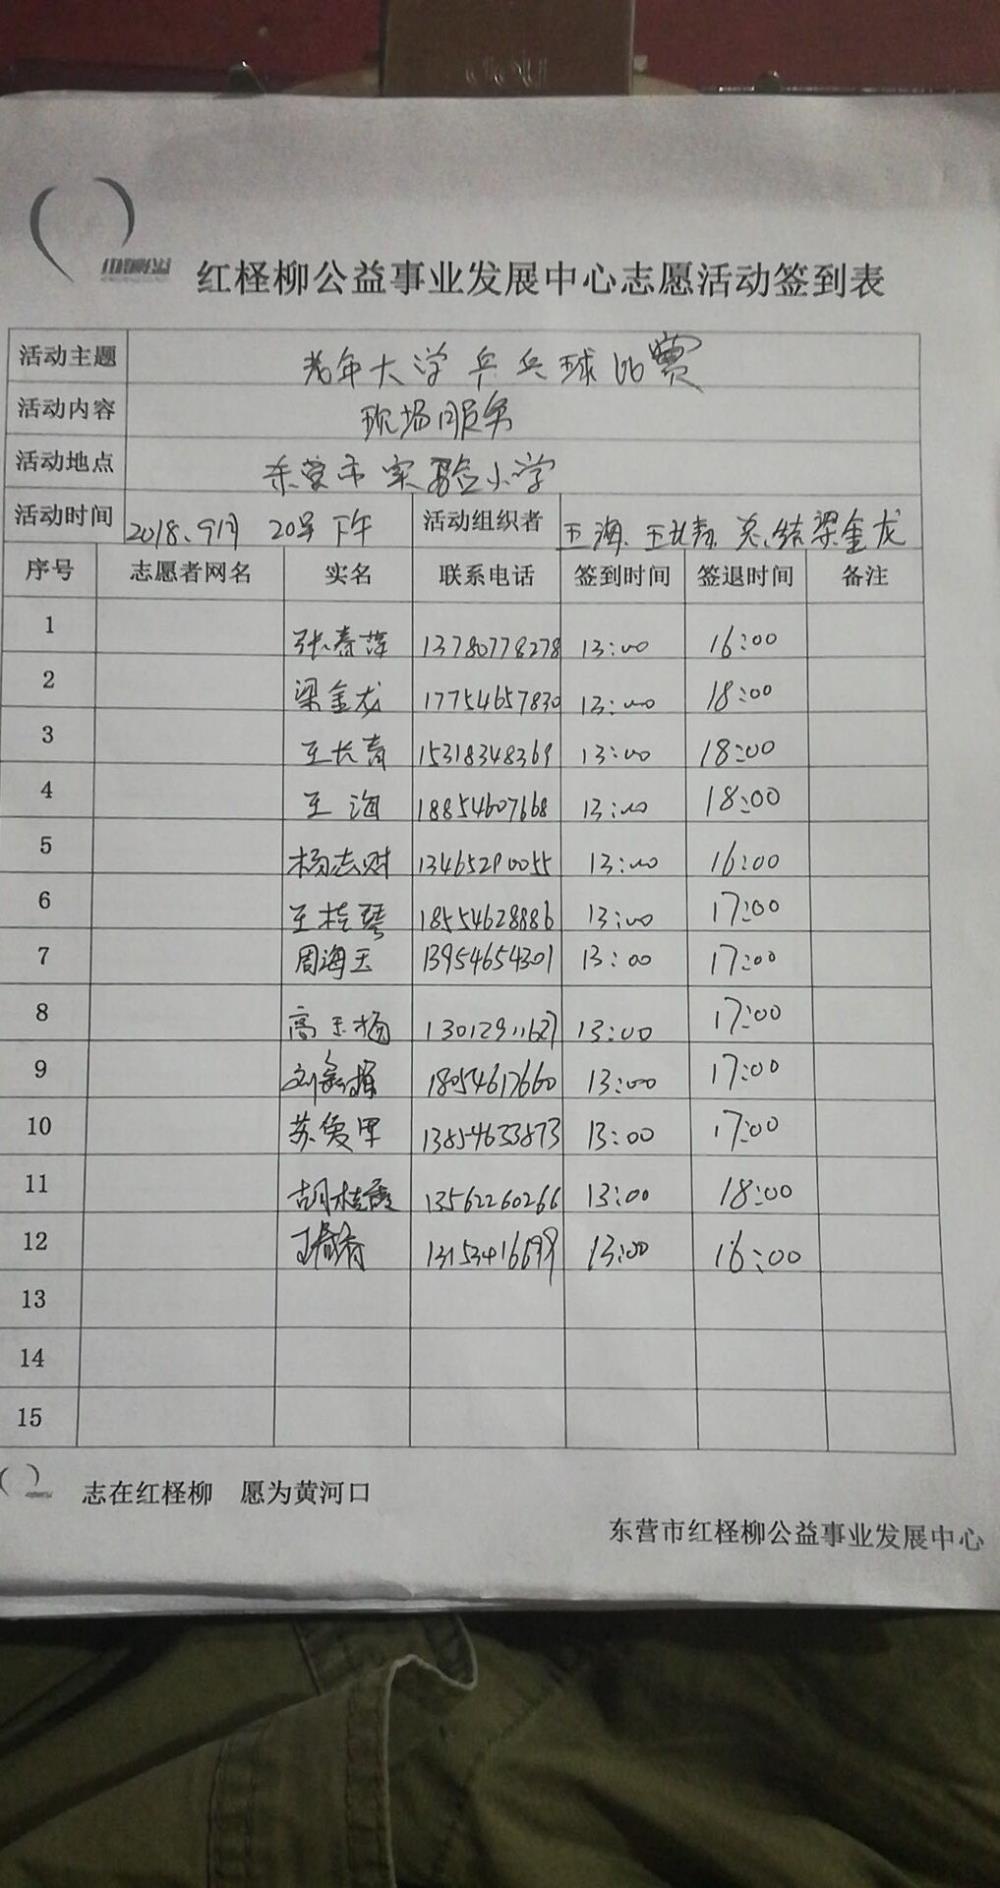 红柽柳公益
红柽柳公益事业发展中心志愿活动签到表
活动主题 老年大学乒乓球比赛
活动内容 现场服务
活动地点 东营市实验小学
活动时间 2018.9月 20号下午 活动组织者 王海、王长青 总结梁金龙
序号 志愿者网名 实名 联系电话 签到时间 签退时间 备注
1 张春萍 13780778278 13:00 16:00
2 梁金龙 17754657830 13:00 18:00
3 王长青 15318348369 13:00 18:00
4 王海 18854607668 13:00 18:00
5 杨志财 13465290055 13:00 16:00
6 王桂琴 18554628886 13:00 17:00
7 周海玉 13954654301 13:00 17:00
8 高玉梅 13:00 17:00
9 18054617660 13:00 17:00
10 苏爱军 13854633873 13:00 17:00
11 胡桂霞 13562260266 13:00 18:00
12 13:00 16:00
13
14
15
志在红柽柳 愿为黄河口
东营市红柽柳公益事业发展中心